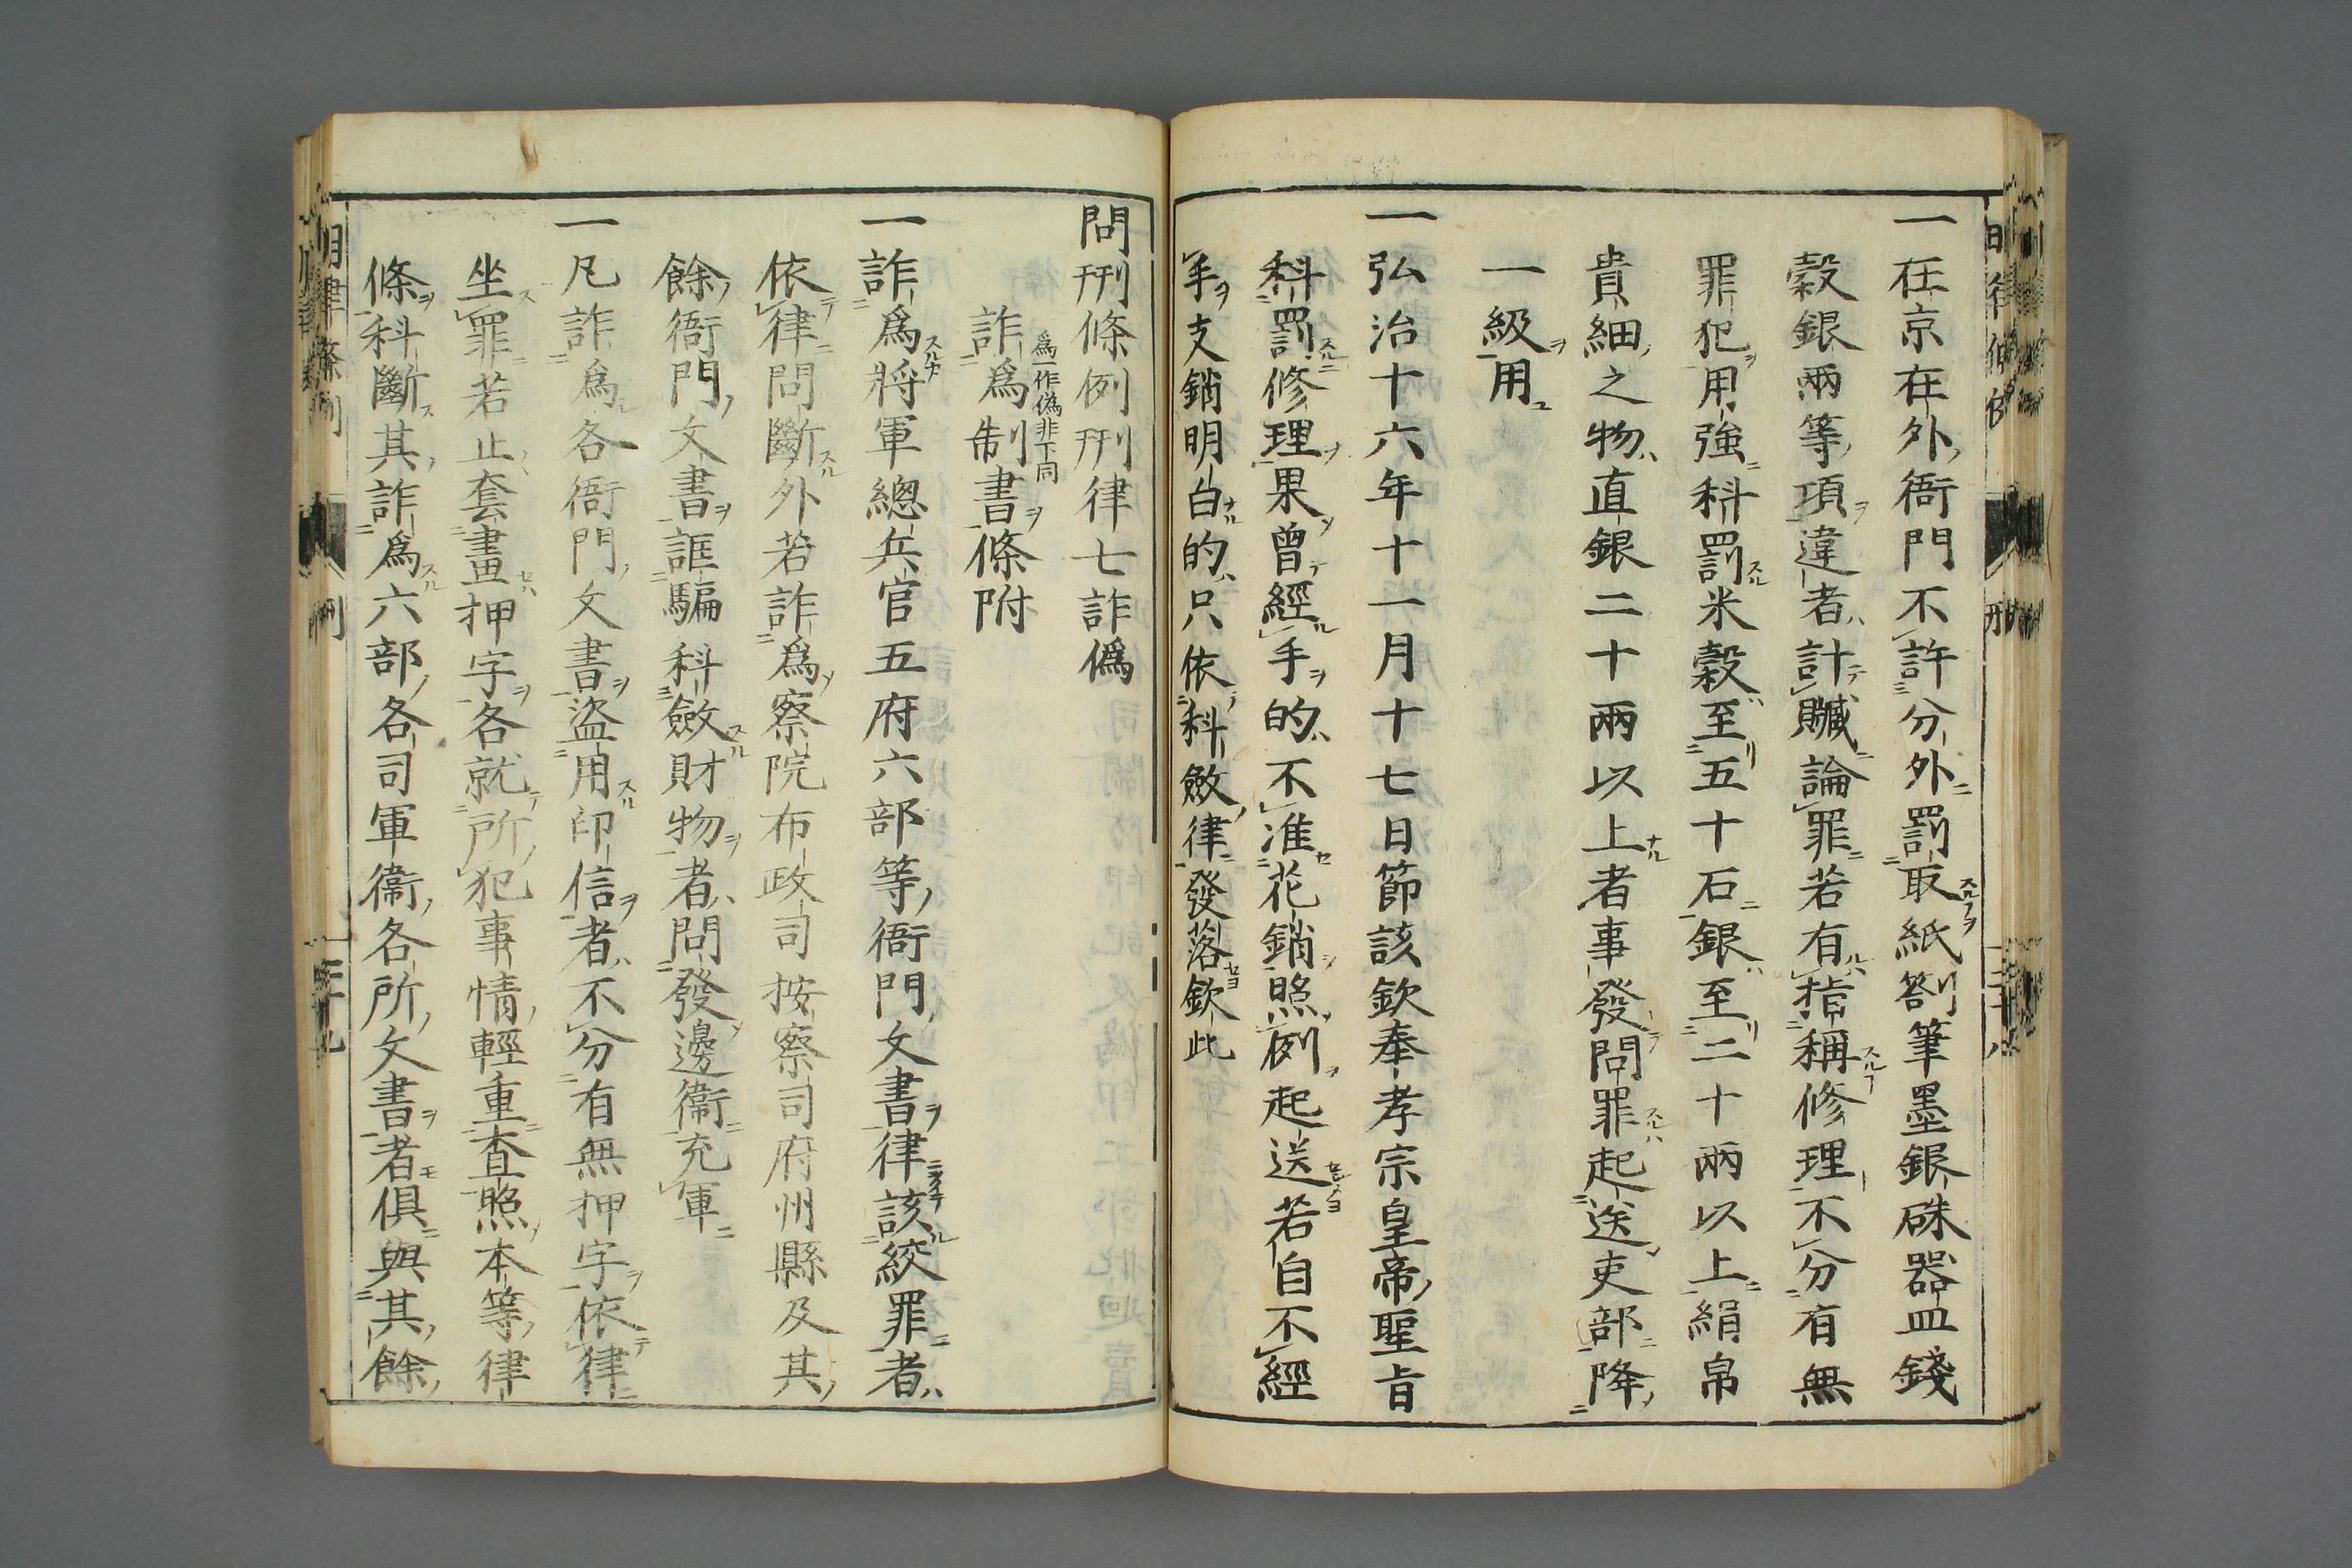 一在京在外衙門不許分外罰取紙劄筆墨銀硃器皿錢
穀銀兩等項違者計贓論罪若有指稱修理不分有無
罪犯用強科罰米穀至五十石銀至二十兩以上絹帛
貴細之物直銀二十兩以上者事發問罪起送吏部降
一級用
一弘治十六年十一月十七日節該欽奉孝宗皇帝聖旨
科罰修理果曾經手的不准花銷照例起送若自不經
手支銷明白的只依科斂律發落欽此
問刑條例刑律七詐僞
詐爲制書條附
爲一作僞非下同
一詐爲將軍總兵官五府六部等衙門文書律該絞罪者
依律問斷外若詐爲察院布政司按察司府州縣及其
餘衙門文書誆騙科斂財物者問發邊衞充軍
一凡詐爲各衙門文書盜用印信者不分有無押字依律
坐罪若止套畫押字各就所犯事情輕重查照本等律
條科斷其詐爲六部各司軍衞各所文書者俱與其餘